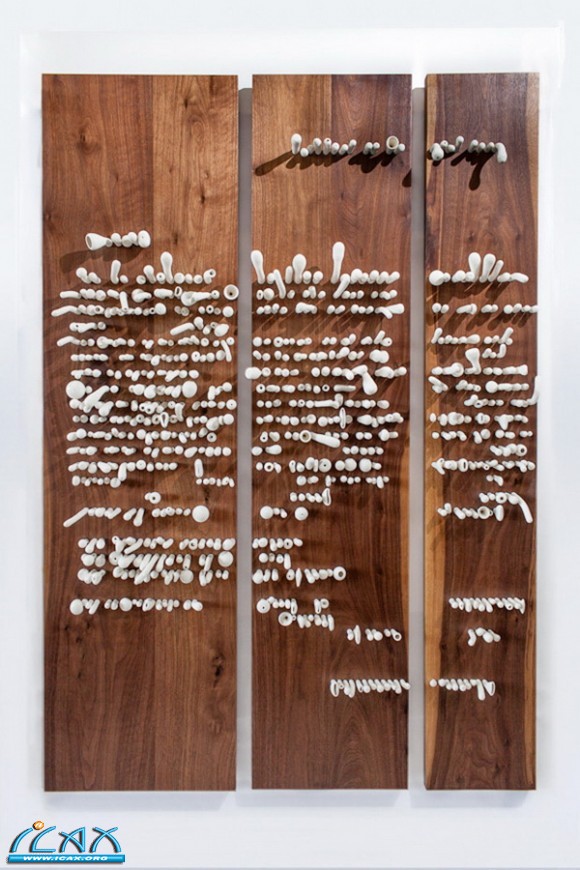 iCAX
WWW.ICAX.ORG